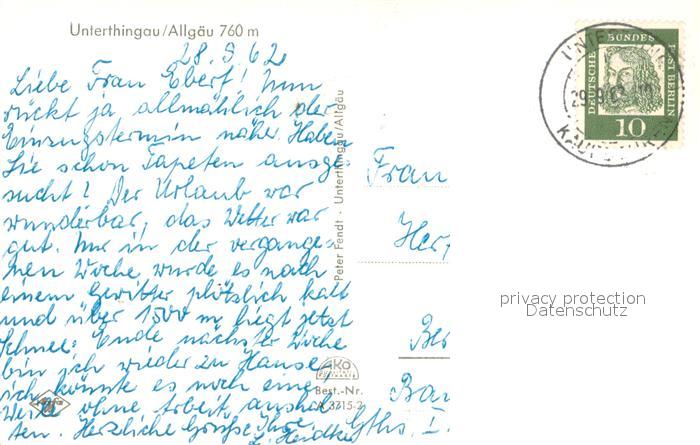 Unterthingau/Allgäu 760 m
28.9.62
Liebe Frau Ebert! Nun
rückt ja allmählich der
Einzugstermin näher. Haben
Sie schon Tapeten ausge-
sucht? Der Urlaub war
wunderbar, das Wetter war
gut. Nur in der vergange-
nen Woche wurde es nach
einem Gewitter plötzlich kalt
und über 1500 m liegt jetzt
Schnee. Ende nächster Woche
bin ich wieder zu Hause
ich könnte es noch eine
Weile ohne Arbeit aushal-
ten. Herzliche Grüße Ihre
Peter Fendt · Unterthingau/Allgäu
AKO
Best.-Nr.
Frau
Her
Ber
DEUTSCHE BUNDESPOST BERLIN
10
privacy protection
Datenschutz